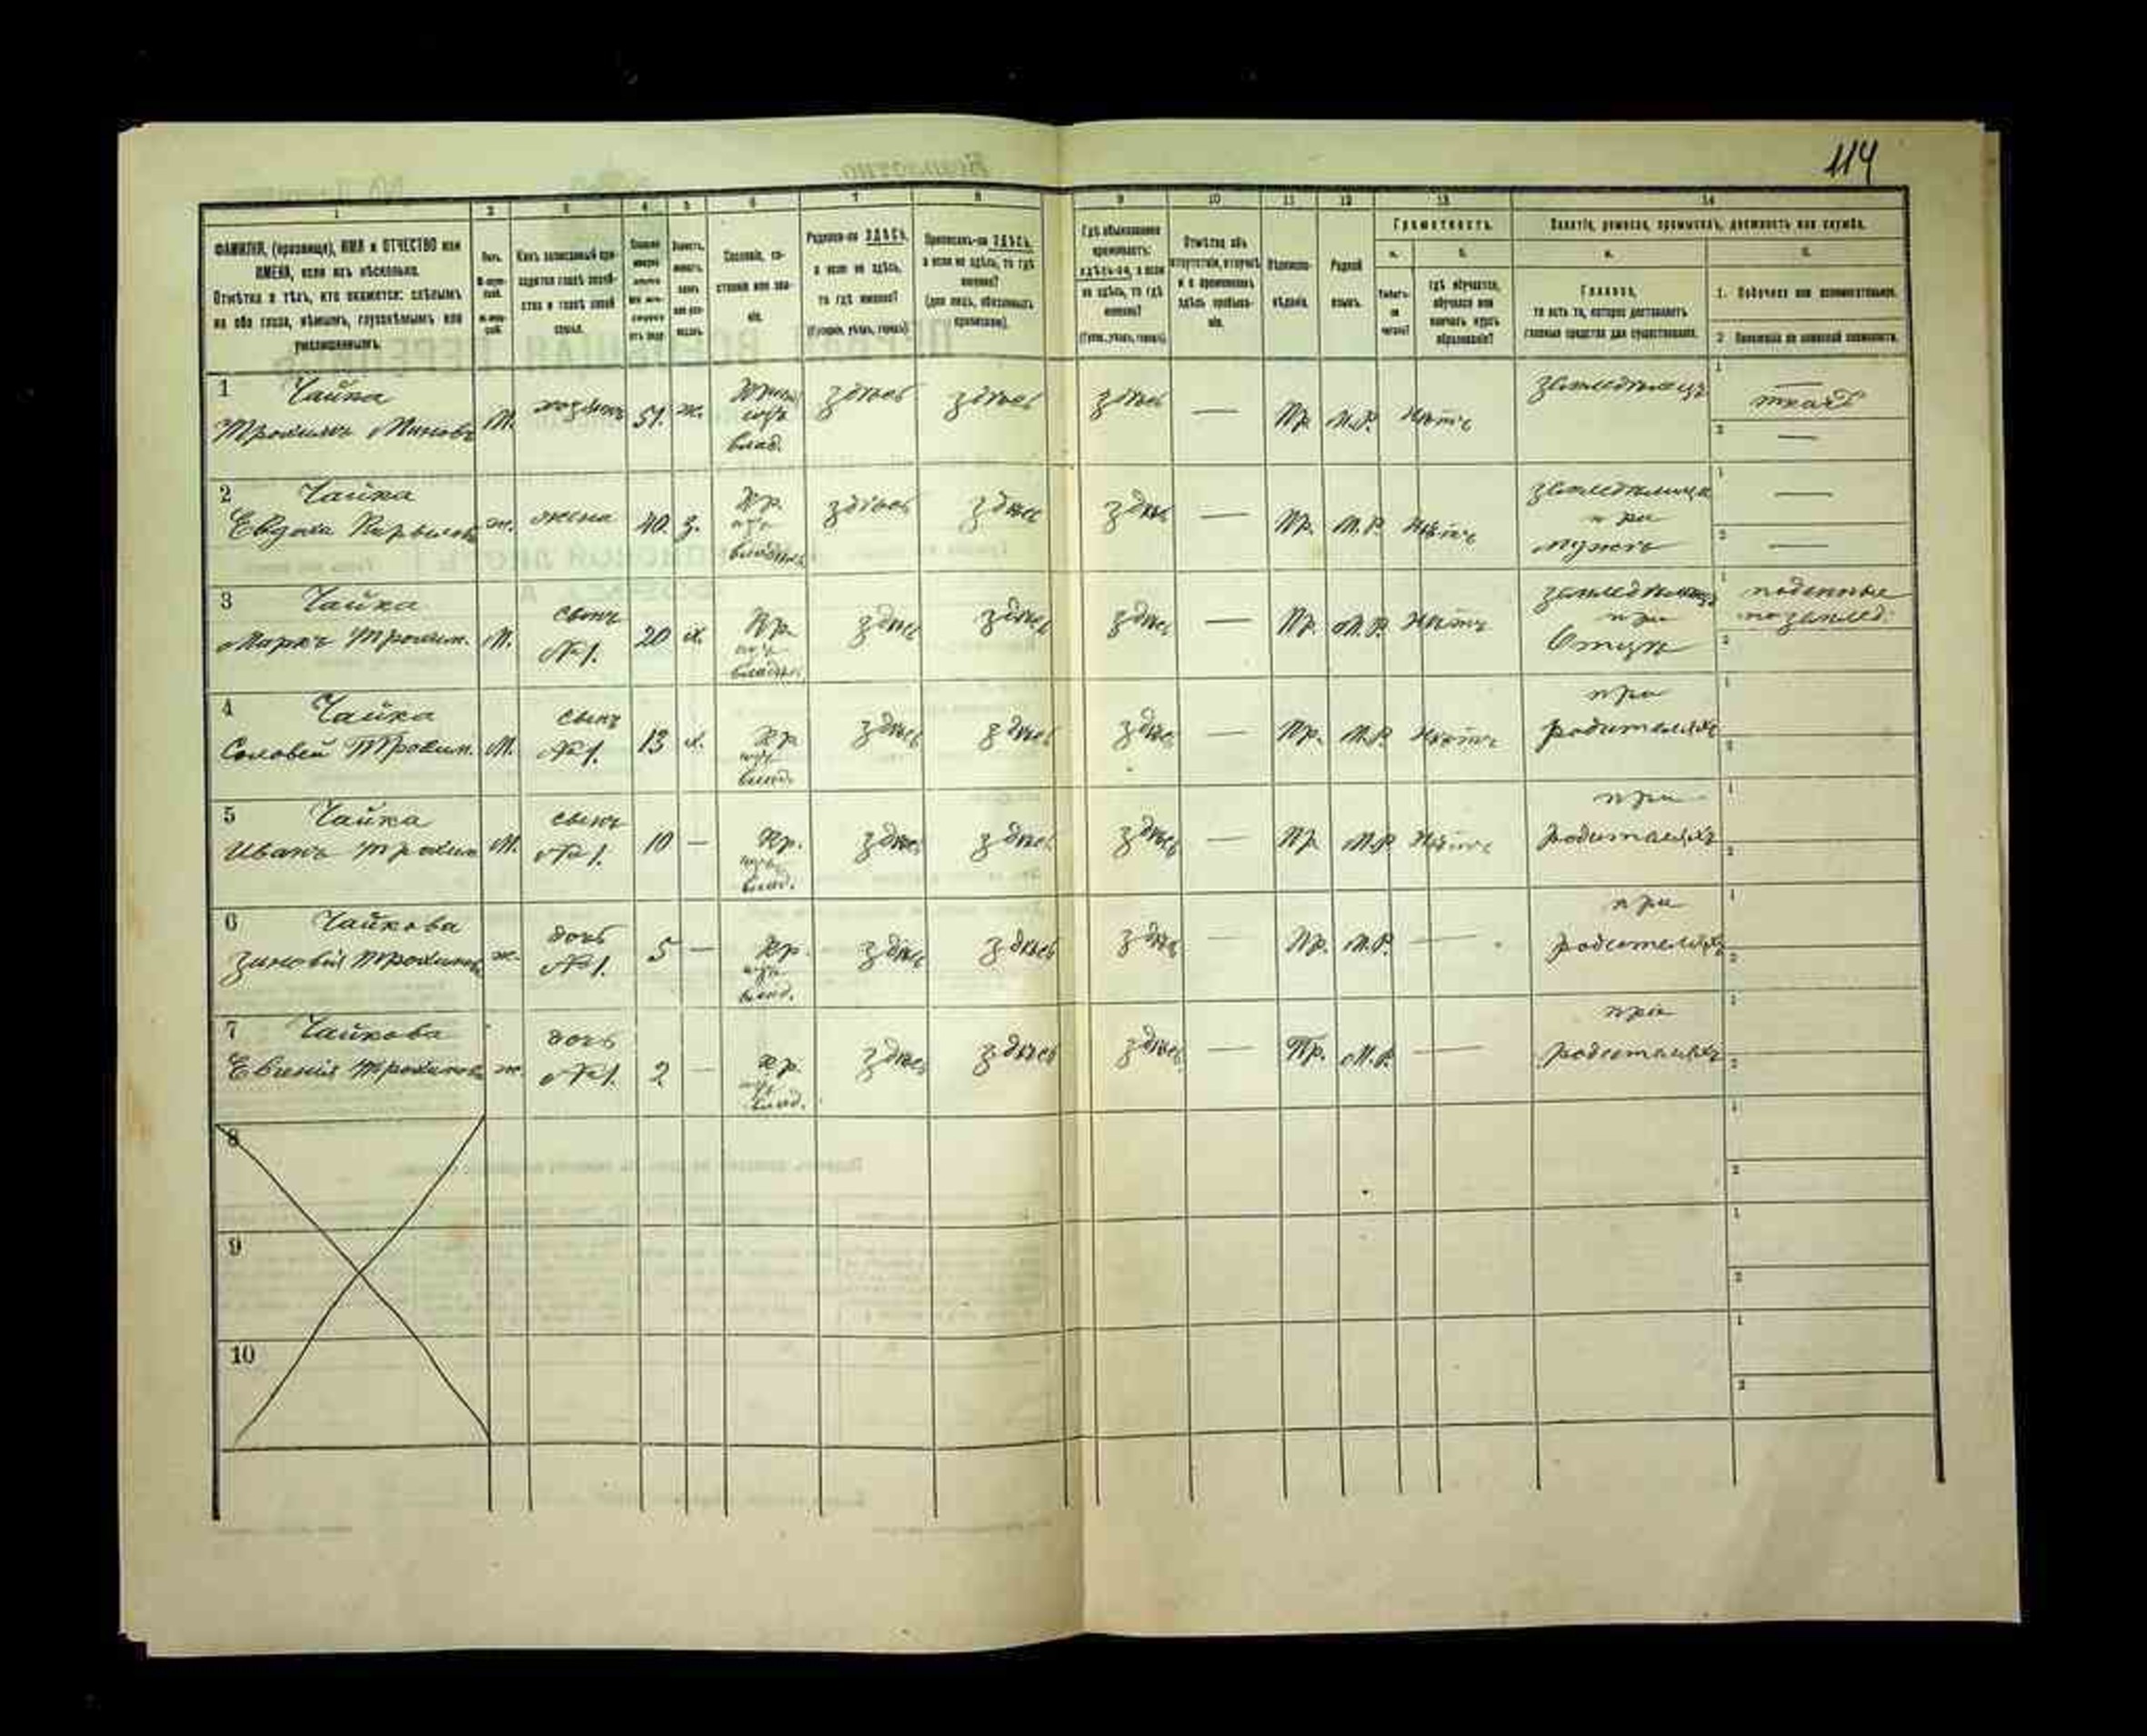 114
1 2 3 4 5 6 7 8 9 10 11 12 13 14
ФАМИЛІЯ, (прозвище), ИМЯ и ОТЧЕСТВО или
ИМЕНА, если ихъ нѣсколько.
Отмѣтка о тѣхъ, кто окажется: слѣпымъ
на оба глаза, нѣмымъ, глухонѣмымъ или
умалишеннымъ.
Полъ.
Какъ записанный при-
ходится главѣ хозяй-
ства и главѣ своей
семьи.
Сословіе, со-
стояніе или зва-
ніе.
Родился-ли ЗДѢСЬ,
а если не здѣсь,
то гдѣ именно?
(Губернія, уѣздъ, городъ)
Приписанъ-ли ЗДѢСЬ,
а если не здѣсь, то гдѣ
именно?
(для лицъ, обязанныхъ
припискою).
Гдѣ обыкновенно
проживаетъ:
здѣсь-ли, а если
не здѣсь, то гдѣ
именно?
(Губ., уѣздъ, городъ)
Отмѣтка объ
отсутствіи, отлучкѣ
и о временномъ
здѣсь пребыва-
ніи.
Вѣроиспо-
вѣданіе.
Родной
языкъ.
Грамотность.
а. б.
Умѣетъ-
ли
читать?
гдѣ обучается,
обучался или
кончилъ курсъ
образованія?
Занятіе, ремесло, промыселъ, должность или служба.
а. б.
Главное,
то есть то, которое доставляетъ
главныя средства для существованія.
1. Побочное или вспомогательное.
2. Положеніе по воинской повинности.
1 Чайка
Трохимъ Миновъ М. хозяинъ 51. ж. здѣсь здѣсь здѣсь — Пр. М.Р. Нѣтъ земледѣлецъ 1 ткачъ
влад. 2 —
2 Чайка
Евдоха Кирылов ж. жена 40. з. Кр. здѣсь здѣсь здѣсь — Пр. М.Р. Нѣтъ земледѣлица 1 —
при
мужѣ 2 —
3 Чайка
Марко Трохим. М. сынъ №1. 20 х. Кр. здѣсь здѣсь здѣсь — Пр. М.Р. Нѣтъ 1 поденные
при
Отцѣ по землед. 2
4 Чайка
Соловей Трохим. М. сынъ №1. 13 х. Кр. влад. здѣсь здѣсь здѣсь — Пр. М.Р. Нѣтъ при
родителяхъ 1 2
5 Чайка
Иванъ Трохим М. сынъ №1. 10 — Кр. влад. здѣсь здѣсь здѣсь — Пр. М.Р. Нѣтъ при
родителяхъ 1 2
6 Чайкова
Зиновія Трохимов ж. дочь №1. 5 — Кр. влад. здѣсь здѣсь здѣсь — Пр. М.Р. — при
родителяхъ 1 2
7 Чайкова
Евгенія Трохимов ж. дочь №1. 2 — Кр. влад. здѣсь здѣсь здѣсь — Пр. М.Р. — при
родителяхъ 1 2
8 1 2
9 1 2
10 1 2